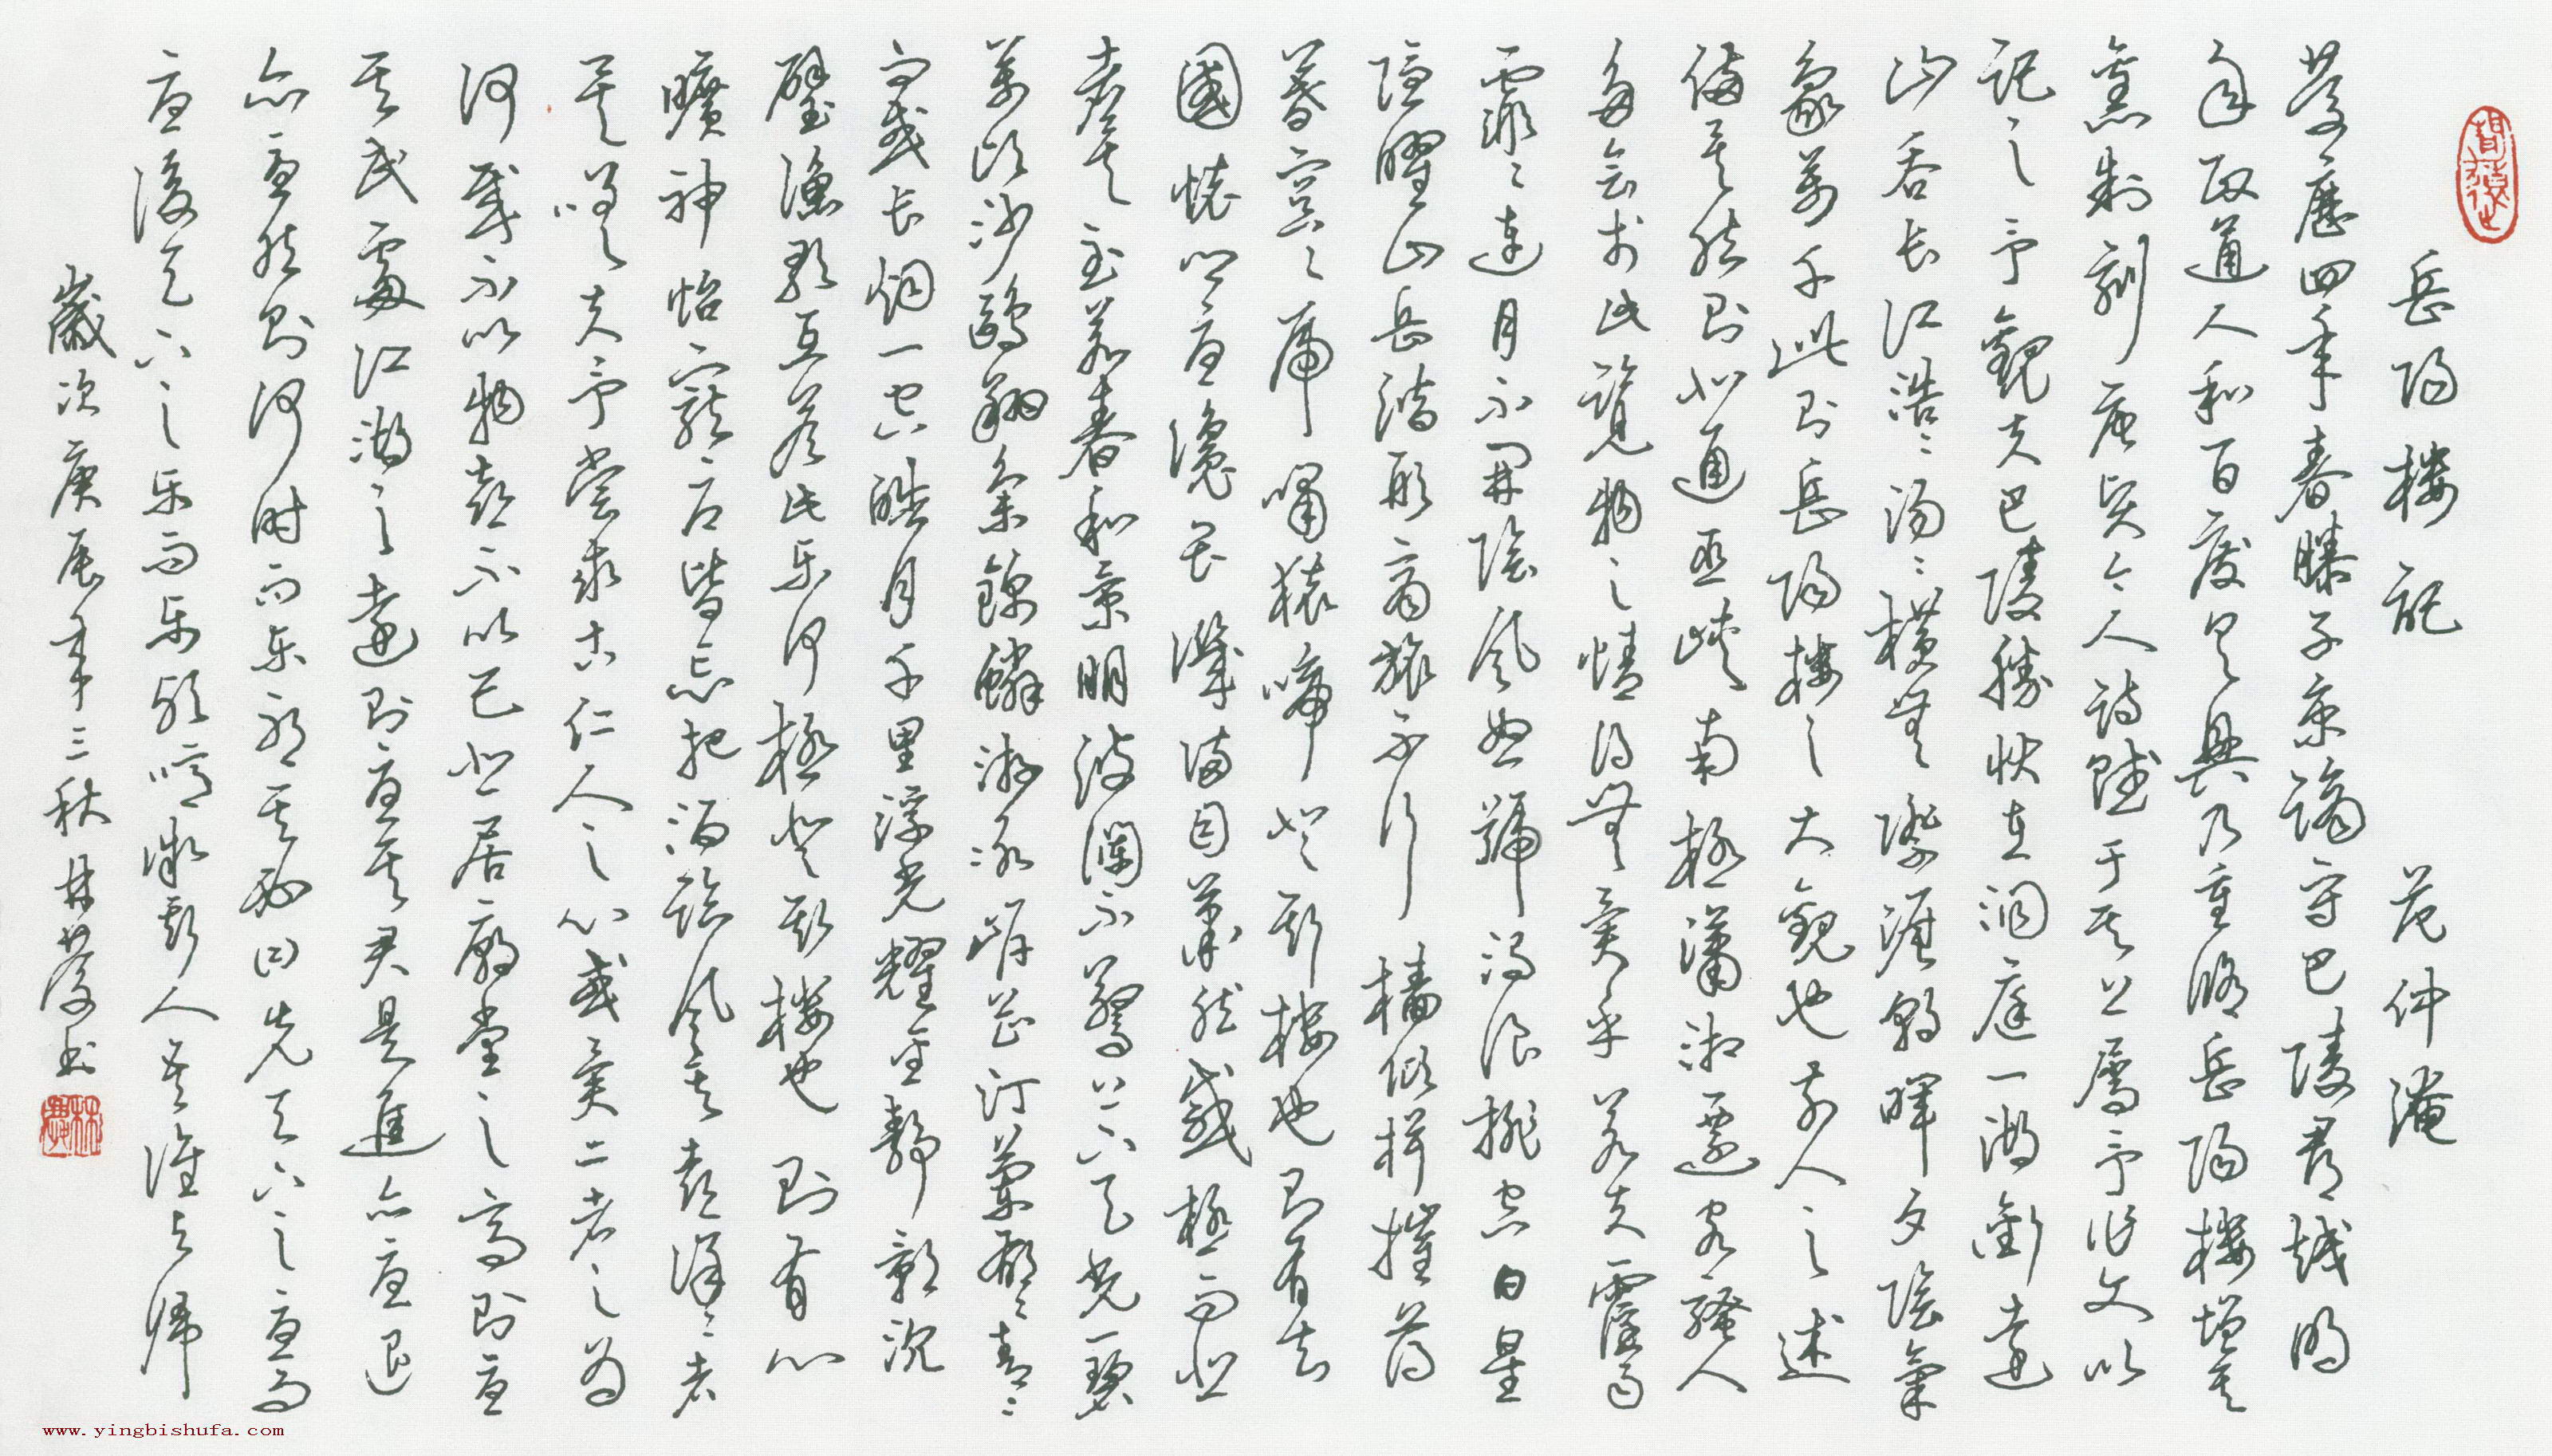 岳陽樓記 范仲淹
慶曆四年春滕子京謫守巴陵郡越明
年政通人和百廢具興乃重修岳陽樓增其
舊制刻唐賢今人詩賦于其上屬予作文以
記之予觀夫巴陵勝狀在洞庭一湖銜遠
山吞長江浩浩湯湯橫無際涯朝暉夕陰氣
象萬千此則岳陽樓之大觀也前人之述
備矣然則北通巫峽南極瀟湘遷客騷人
多會於此覽物之情得無異乎若夫霪雨
霏霏連月不開陰風怒號濁浪排空日星
隱曜山岳潛形商旅不行檣傾楫摧薄
暮冥冥虎嘯猿啼登斯樓也則有去
國懷鄉憂讒畏譏滿目蕭然感極而悲
者矣至若春和景明波瀾不驚上下天光一碧
萬頃沙鷗翔集錦鱗游泳岸芷汀蘭郁郁青青
而或長烟一空皓月千里浮光耀金靜影沉
璧漁歌互答此樂何極登斯樓也則有心
曠神怡寵辱皆忘把酒臨風其喜洋洋者
矣嗟夫予嘗求古仁人之心或異二者之為
何哉不以物喜不以己悲居廟堂之高則憂
其民處江湖之遠則憂其君是進亦憂退
亦憂然則何時而樂耶其必曰先天下之憂而
憂後天下之樂而樂歟噫微斯人吾誰與歸
歲次庚辰年三秋林慶書
www.yingbishufa.com